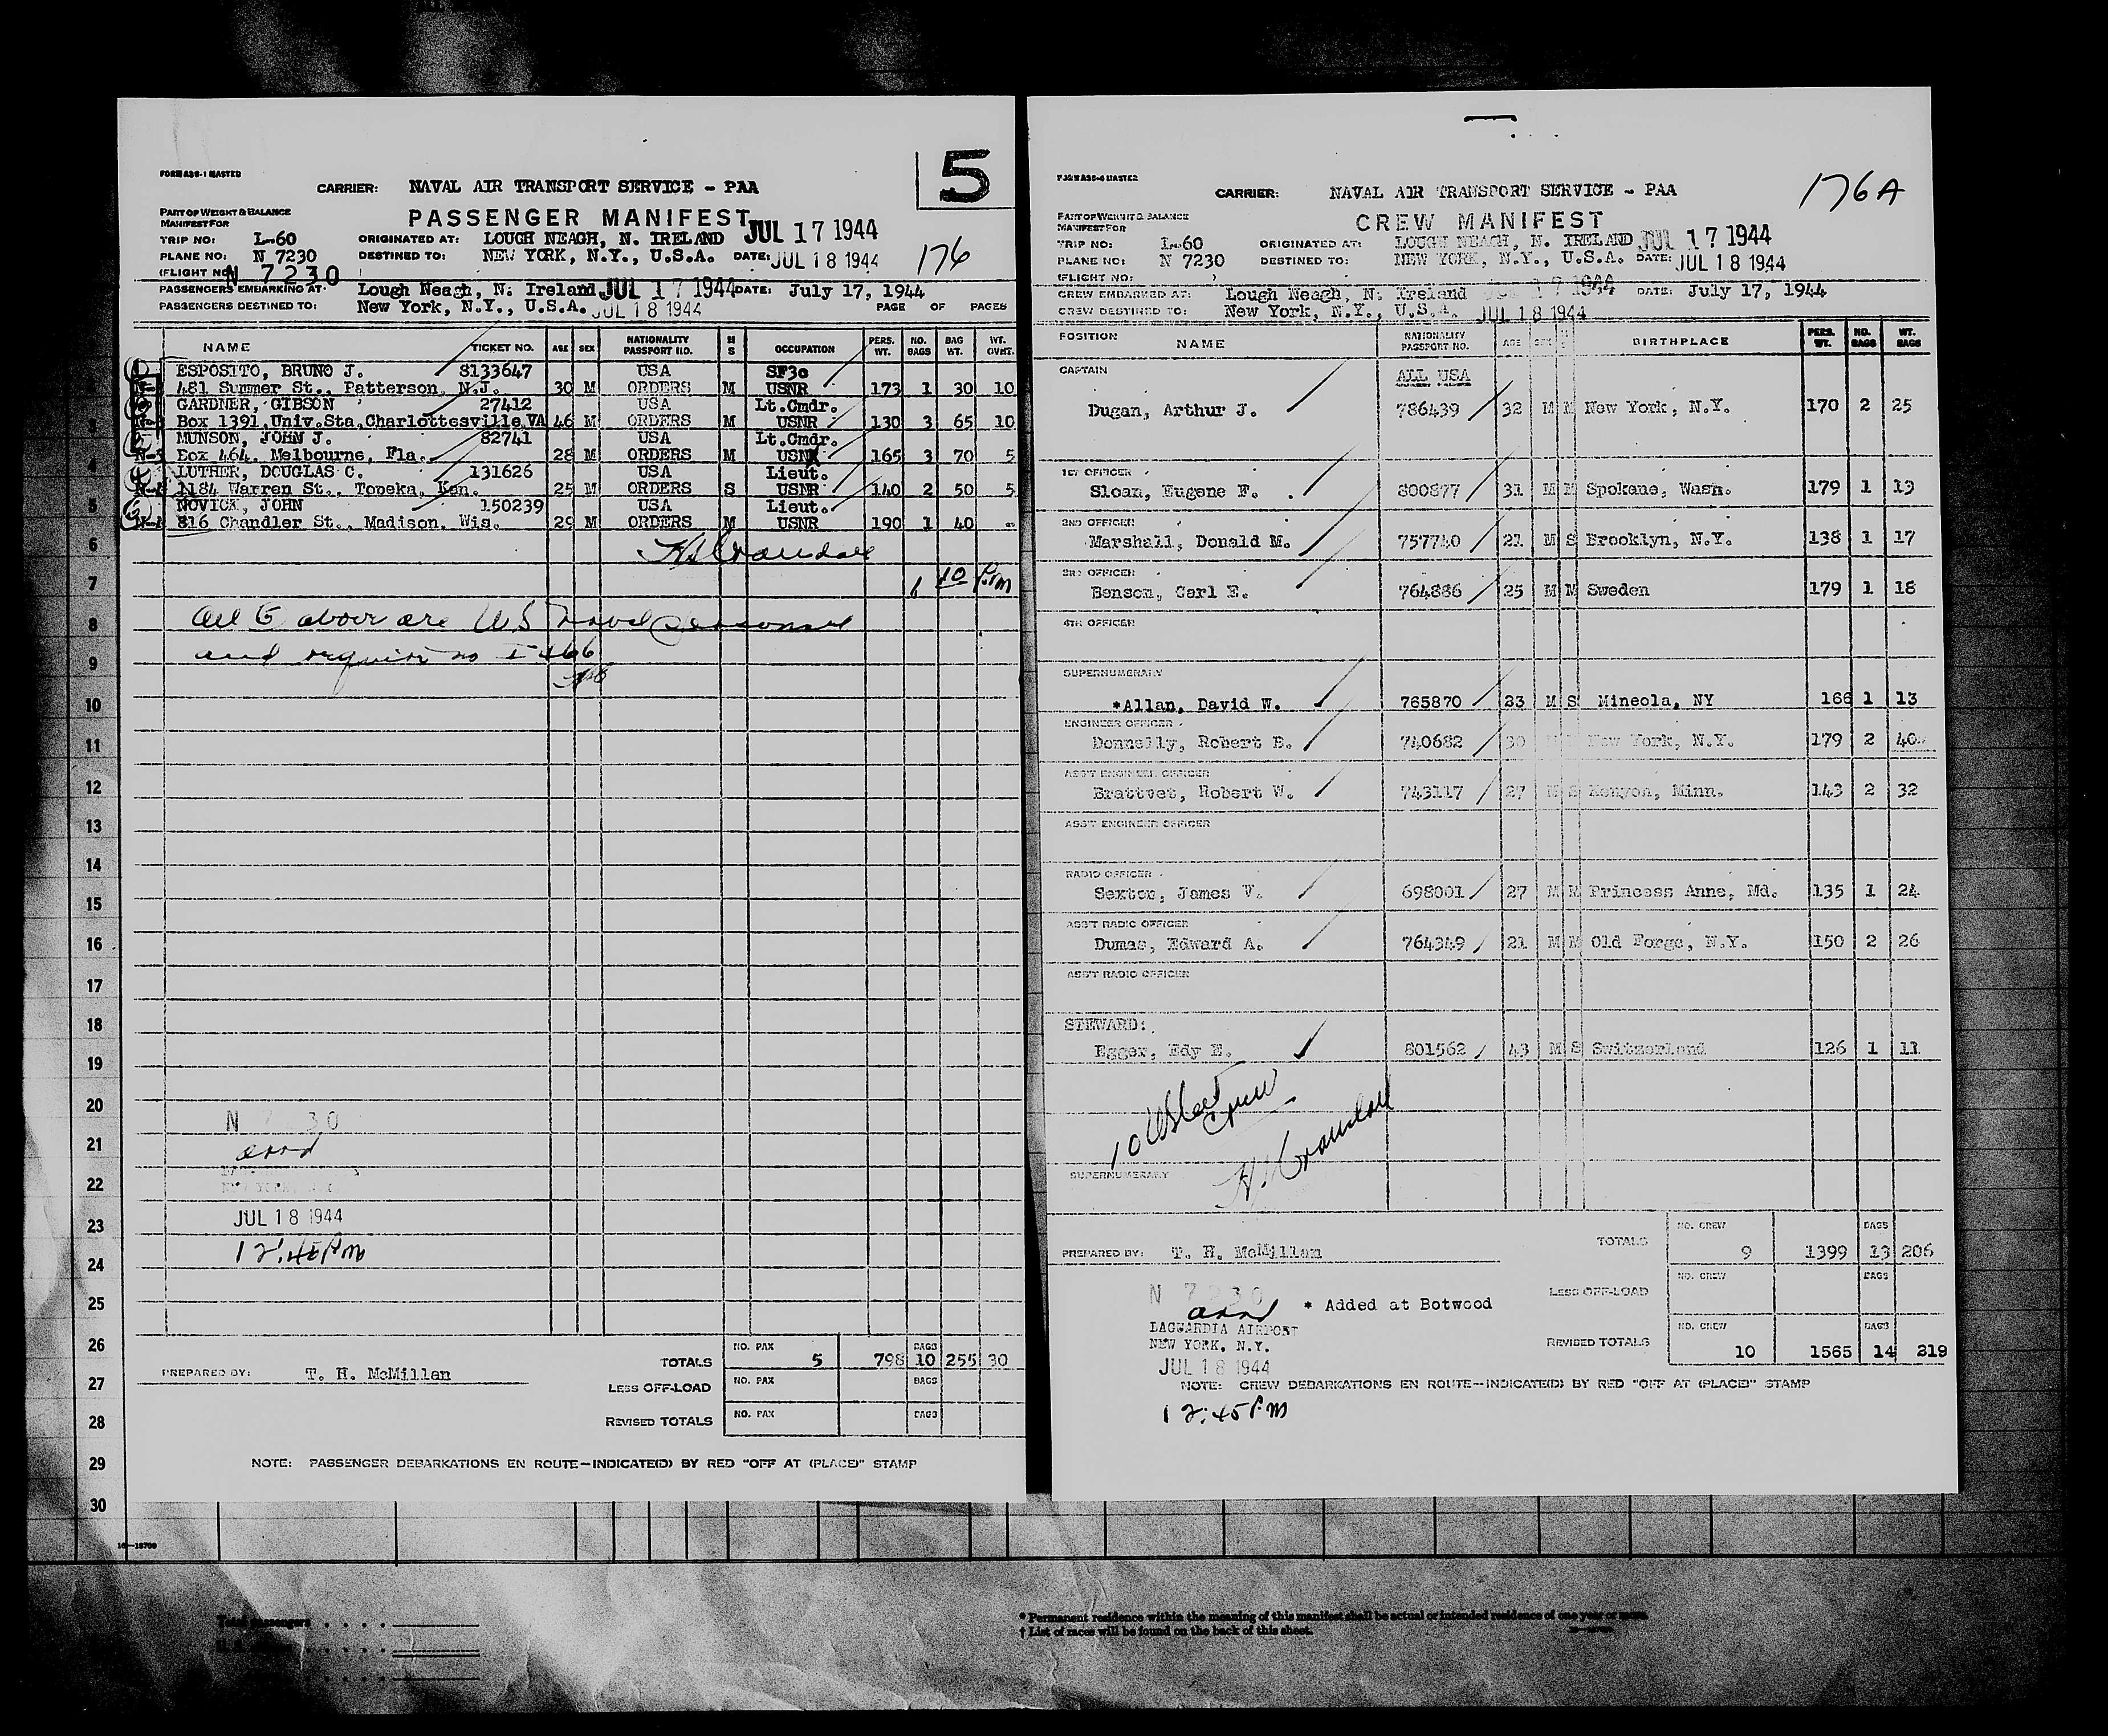 5
FORM A38-1 MASTER
CARRIER: NAVAL AIR TRANSPORT SERVICE - PAA
PART OF WEIGHT & BALANCE
MANIFEST FOR
PASSENGER MANIFEST JUL 17 1944
TRIP NO: L-60 ORIGINATED AT: LOUGH NEAGH, N. IRELAND
PLANE NO: N 7230 DESTINED TO: NEW YORK, N.Y., U.S.A. DATE: JUL 18 1944 176
(FLIGHT NO: N 7230
PASSENGERS EMBARKING AT: Lough Neagh, N. Ireland JUL 17 1944 DATE: July 17, 1944
PASSENGERS DESTINED TO: New York, N.Y., U.S.A. JUL 18 1944 PAGE OF PAGES
NAME TICKET NO. AGE SEX NATIONALITY PASSPORT NO. M S OCCUPATION PERS. WT. NO. BAGS BAG WT. WT. OVWT.
ESPOSITO, BRUNO J. 8133647 USA SF3c
481 Summer St., Patterson, N.J. 30 M ORDERS M USNR 173 1 30 10
GARDNER, GIBSON 27412 USA Lt.Cmdr.
Box 1391, Univ.Sta, Charlottesville, VA 46 M ORDERS M USNR 130 3 65 10
MUNSON, JOHN J. 82741 USA Lt.Cmdr.
Box 464, Melbourne, Fla. 28 M ORDERS M USN 165 3 70 5
LUTHER, DOUGLAS C. 131626 USA Lieut.
1184 Warren St., Topeka, Kan. 25 M ORDERS S USNR 140 2 50 5
NOVICK, JOHN 150239 USA Lieut.
816 Chandler St., Madison, Wis. 29 M ORDERS M USNR 190 1 40 -
H Crandall
1 10 P.m
All 5 above are US Naval Personnel
and require no I-466
N 7230
arrd
NEW YORK, N.Y.
JUL 18 1944
12:45 Pm
NO. PAX BAGS
TOTALS 5 798 10 255 30
PREPARED BY: T. H. McMillan
LESS OFF-LOAD NO. PAX BAGS
REVISED TOTALS NO. PAX BAGS
NOTE: PASSENGER DEBARKATIONS EN ROUTE—INDICATE(D) BY RED "OFF AT (PLACE)" STAMP
3
4
5
6
7
8
9
10
11
12
13
14
15
16
17
18
19
20
21
22
23
24
25
26
27
28
29
30
16—18700
FORM A38-4 MASTER
176A
CARRIER: NAVAL AIR TRANSPORT SERVICE - PAA
PART OF WEIGHT & BALANCE
MANIFEST FOR
CREW MANIFEST
TRIP NO: L-60 ORIGINATED AT: LOUGH NEAGH, N. IRELAND JUL 17 1944
PLANE NO: N 7230 DESTINED TO: NEW YORK, N.Y., U.S.A. DATE: JUL 18 1944
(FLIGHT NO: )
CREW EMBARKED AT: Lough Neagh, N. Ireland JUL 17 1944 DATE: July 17, 1944
CREW DESTINED TO: New York, N.Y., U.S.A. JUL 18 1944
POSITION NAME NATIONALITY PASSPORT NO. AGE SEX BIRTHPLACE PERS. WT. NO. BAGS WT. BAGS
CAPTAIN ALL USA
Dugan, Arthur J. 786439 32 M M New York, N.Y. 170 2 25
1ST OFFICER
Sloan, Eugene F. 800877 31 M M Spokane, Wash. 179 1 13
2ND OFFICER
Marshall, Donald M. 757740 21 M S Brooklyn, N.Y. 138 1 17
3RD OFFICER
Benson, Carl E. 764886 25 M M Sweden 179 1 18
4TH OFFICER
SUPERNUMERARY
*Allan, David W. 765870 23 M S Mineola, NY 166 1 13
ENGINEER OFFICER
Donnelly, Robert B. 740682 30 New York, N.Y. 179 2 40
ASS'T ENGINEER OFFICER
Brattvet, Robert W. 743117 27 M S Kenyon, Minn. 143 2 32
ASS'T ENGINEER OFFICER
RADIO OFFICER
Sexton, James V. 698001 27 M M Princess Anne, Md. 135 1 24
ASS'T RADIO OFFICER
Dumas, Edward A. 764349 21 M M Old Forge, N.Y. 150 2 26
ASS'T RADIO OFFICER
STEWARD:
Egger, Edy E. 801562 43 M S Switzerland 126 1 11
10 US Crew
H. Crandall
SUPERNUMERARY
NO. CREW BAGS
PREPARED BY: T. H. McMillan TOTALS 9 1399 13 206
NO. CREW BAGS
LESS OFF-LOAD
N 7230
arrd * Added at Botwood
LAGUARDIA AIRPORT
NO. CREW BAGS
NEW YORK, N.Y. REVISED TOTALS 10 1565 14 219
JUL 18 1944
NOTE: CREW DEBARKATIONS EN ROUTE—INDICATE(D) BY RED "OFF AT (PLACE)" STAMP
12:45 Pm
Total passengers
* Permanent residence within the meaning of this manifest shall be actual or intended residence of one year or more.
† List of races will be found on the back of this sheet.